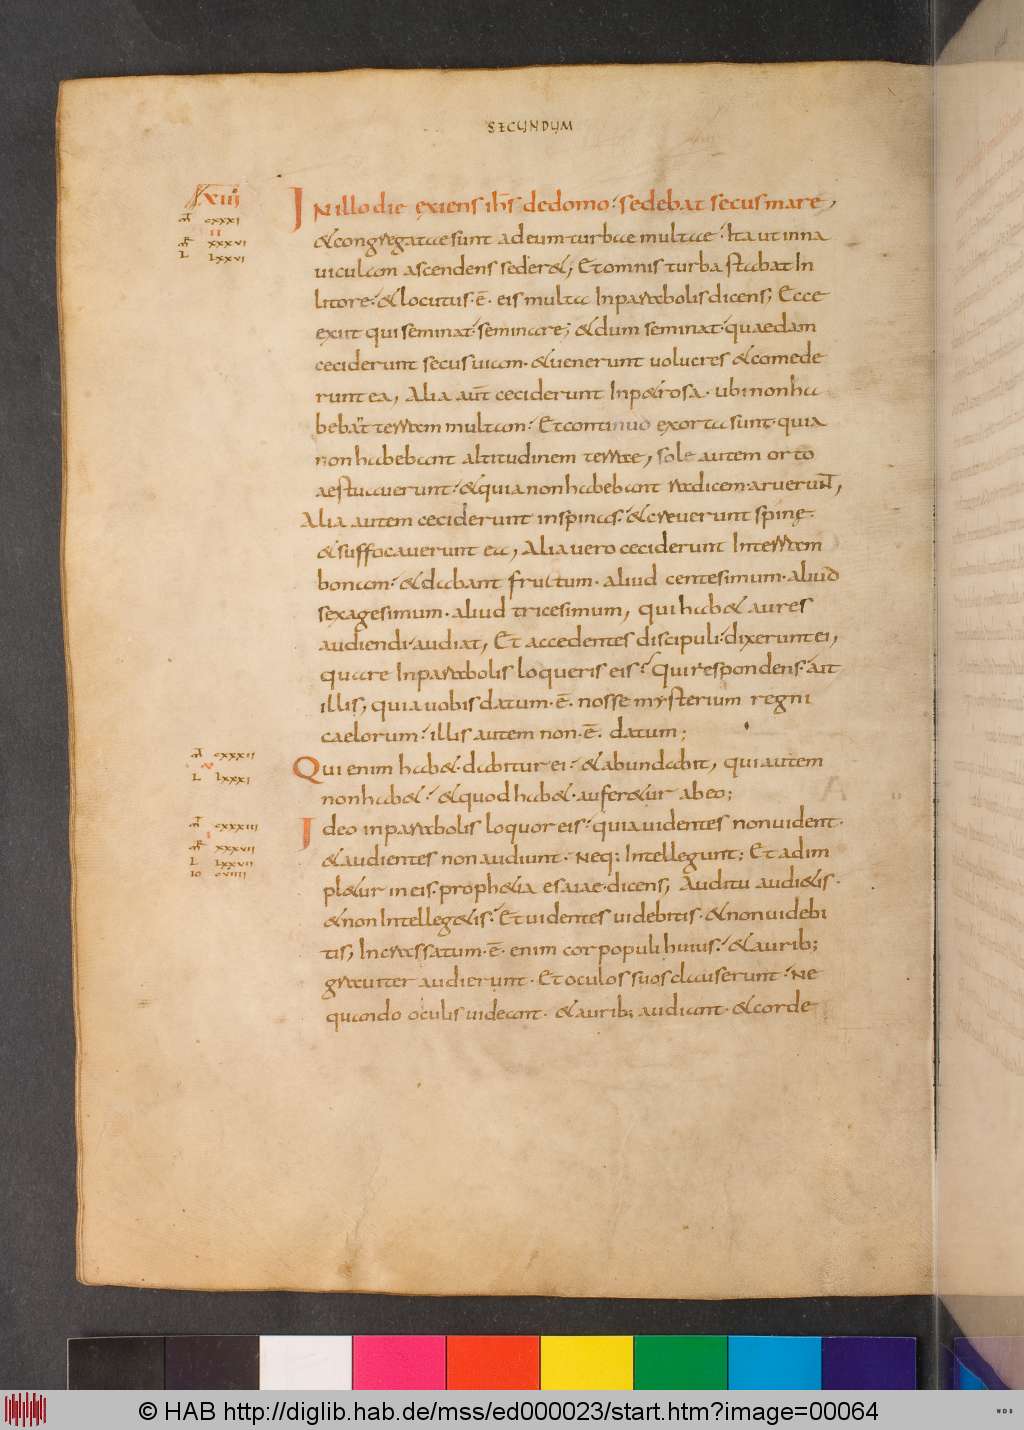 SECUNDUM
XIIII
IN illo die exiens ihs dedomo; sedebat secus mare,
mt cxxxi
II
&congregatae sunt adeum turbae multae; Ita ut inna
mr xxxvi
L lxxvi
uiculam ascendens seder&; Et omnis turba stabat In
litore; & locutus ·ē· eis multa Inparabolis dicens; Ecce
exiit qui seminat seminare; &dum seminat quaedam
ceciderunt secus uiam· &uenerunt uolucres &comede
runt ea, Alia aūt ceciderunt Inp&rosa· ubi nonha
bebat terram multam; Et continuo exorta sunt· quia
non habebant altitudinem terrae, sole autem orto
aestuauerunt; &quia non habebant radicem· aruerunt,
Alia autem ceciderunt in spinas; &creuerunt spinę
&suffocauerunt ea, Alia uero ceciderunt Interram
bonam; &dabant fructum· aliud centesimum· aliud
sexagesimum· aliud tricesimum, qui hab& aures
audiendi· audiat, Et accedentes discipuli; dixerunt ei,
quare Inparabolis loqueris eis? Qui respondens· ait
illis; quia uobis datum ·ē· nosse mysterium regni
caelorum; illis autem non ·ē· datum;
mt cxxxii
V
L lxxxi
Qui enim hab&· dabitur ei; &abundabit, qui autem
non hab&; &quod hab&· aufer&ur abeo;
mt cxxxiii
I
mr xxxvii
L lxxvii
IO cviiii
Ideo inparabolis loquor eis; quia uidentes non uident·
&audientes non audiunt· Neq; Intellegunt; Et adim
pl&ur in eis· proph&ia esaiae· dicens; Auditu audi&is·
&non Intelleg&is; Et uidentes uidebitis· &non uidebi
tis, Incrassatum ·ē· enim cor populi huius; &aurib;
grauiter audierunt· Et oculos suos clauserunt; Ne
quando oculis uideant· &aurib; audiant· &corde
© HAB http://diglib.hab.de/mss/ed000023/start.htm?image=00064